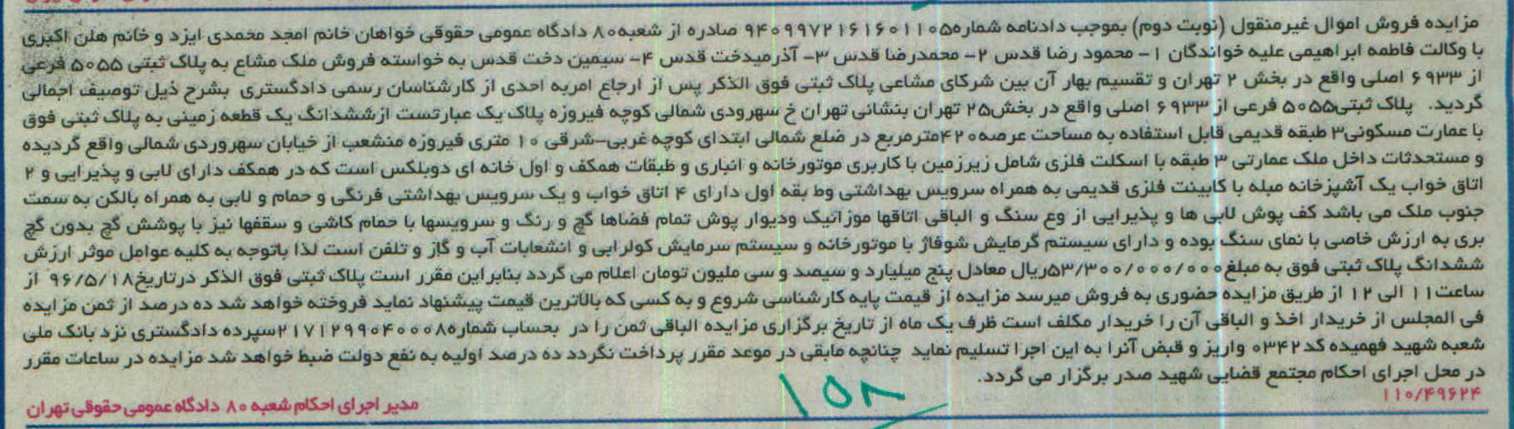 مزایده فروش اموال غیرمنقول (نوبت دوم) بموجب دادنامه شماره۹۴۰۹۹۷۲۱۶۱۶۰۱۱۰۵ صادره از شعبه۸۰ دادگاه عمومی حقوقی خواهان خانم امجد محمدی ایزد و خانم هلن اکبری
با وکالت فاطمه ابراهیمی علیه خواندگان ۱- محمود رضا قدس ۲- محمدرضا قدس ۳- آذرمیدخت قدس ۴- سیمین دخت قدس به خواسته فروش ملک مشاع به پلاک ثبتی ۵۰۵۵ فرعی
از ۶۹۳۳ اصلی واقع در بخش ۲ تهران و تقسیم بهار آن بین شرکای مشاعی پلاک ثبتی فوق الذکر پس از ارجاع امربه احدی از کارشناسان رسمی دادگستری بشرح ذیل توصیف اجمالی
گردید. پلاک ثبتی۵۰۵۵ فرعی از ۶۹۳۳ اصلی واقع در بخش۲۵ تهران بنشانی تهران خ سهرودی شمالی کوچه فیروزه پلاک یک عبارتست ازششدانگ یک قطعه زمینی به پلاک ثبتی فوق
با عمارت مسکونی۳ طبقه قدیمی قابل استفاده به مساحت عرصه۴۲۰مترمربع در ضلع شمالی ابتدای کوچه غربی-شرقی ۱۰ متری فیروزه منشعب از خیابان سهروردی شمالی واقع گردیده
و مستحدثات داخل ملک عمارتی ۳ طبقه با اسکلت فلزی شامل زیرزمین با کاربری موتورخانه و انباری و طبقات همکف و اول خانه ای دوبلکس است که در همکف دارای لابی و پذیرایی و ۲
اتاق خواب یک آشپزخانه مبله با کابینت فلزی قدیمی به همراه سرویس بهداشتی وط بقه اول دارای ۴ اتاق خواب و یک سرویس بهداشتی فرنگی و حمام و لابی به همراه بالکن به سمت
جنوب ملک می باشد کف پوش لابی ها و پذیرایی از وع سنگ و الباقی اتاقها موزائیک ودیوار پوش تمام فضاها گچ و رنگ و سرویسها با حمام کاشی و سقفها نیز با پوشش گچ بدون گچ
بری به ارزش خاصی با نمای سنگ بوده و دارای سیستم گرمایش شوفاژ با موتورخانه و سیستم سرمایش کولرابی و انشعابات آب و گاز و تلفن است لذا باتوجه به کلیه عوامل موثر ارزش
ششدانگ پلاک ثبتی فوق به مبلغ۵۳/۳۰۰/۰۰۰/۰۰۰ریال معادل پنج میلیارد و سیصد و سی ملیون تومان اعلام می گردد بنابراین مقرر است پلاک ثبتی فوق الذکر درتاریخ۹۶/۵/۱۸ از
ساعت۱۱ الی ۱۲ از طریق مزایده حضوری به فروش میرسد مزایده از قیمت پایه کارشناسی شروع و به کسی که بالاترین قیمت پیشنهاد نماید فروخته خواهد شد ده درصد از ثمن مزایده
فی المجلس از خریدار اخذ و الباقی آن را خریدار مکلف است ظرف یک ماه از تاریخ برگزاری مزایده الباقی ثمن را در بحساب شماره۲۱۷۱۲۹۹۰۴۰۰۰۸سپرده دادگستری نزد بانک ملی
شعبه شهید فهمیده کد۰۳۴۲ واریز و قبض آنرا به این اجرا تسلیم نماید چنانچه مابقی در موعد مقرر پرداخت نگردد ده درصد اولیه به نفع دولت ضبط خواهد شد مزایده در ساعات مقرر
در محل اجرای احکام مجتمع قضایی شهید صدر برگزار می گردد.
۱۵۸
۱۱۰/۴۹۶۲۴
مدیر اجرای احکام شعبه ۸۰ دادگاه عمومی حقوقی تهران